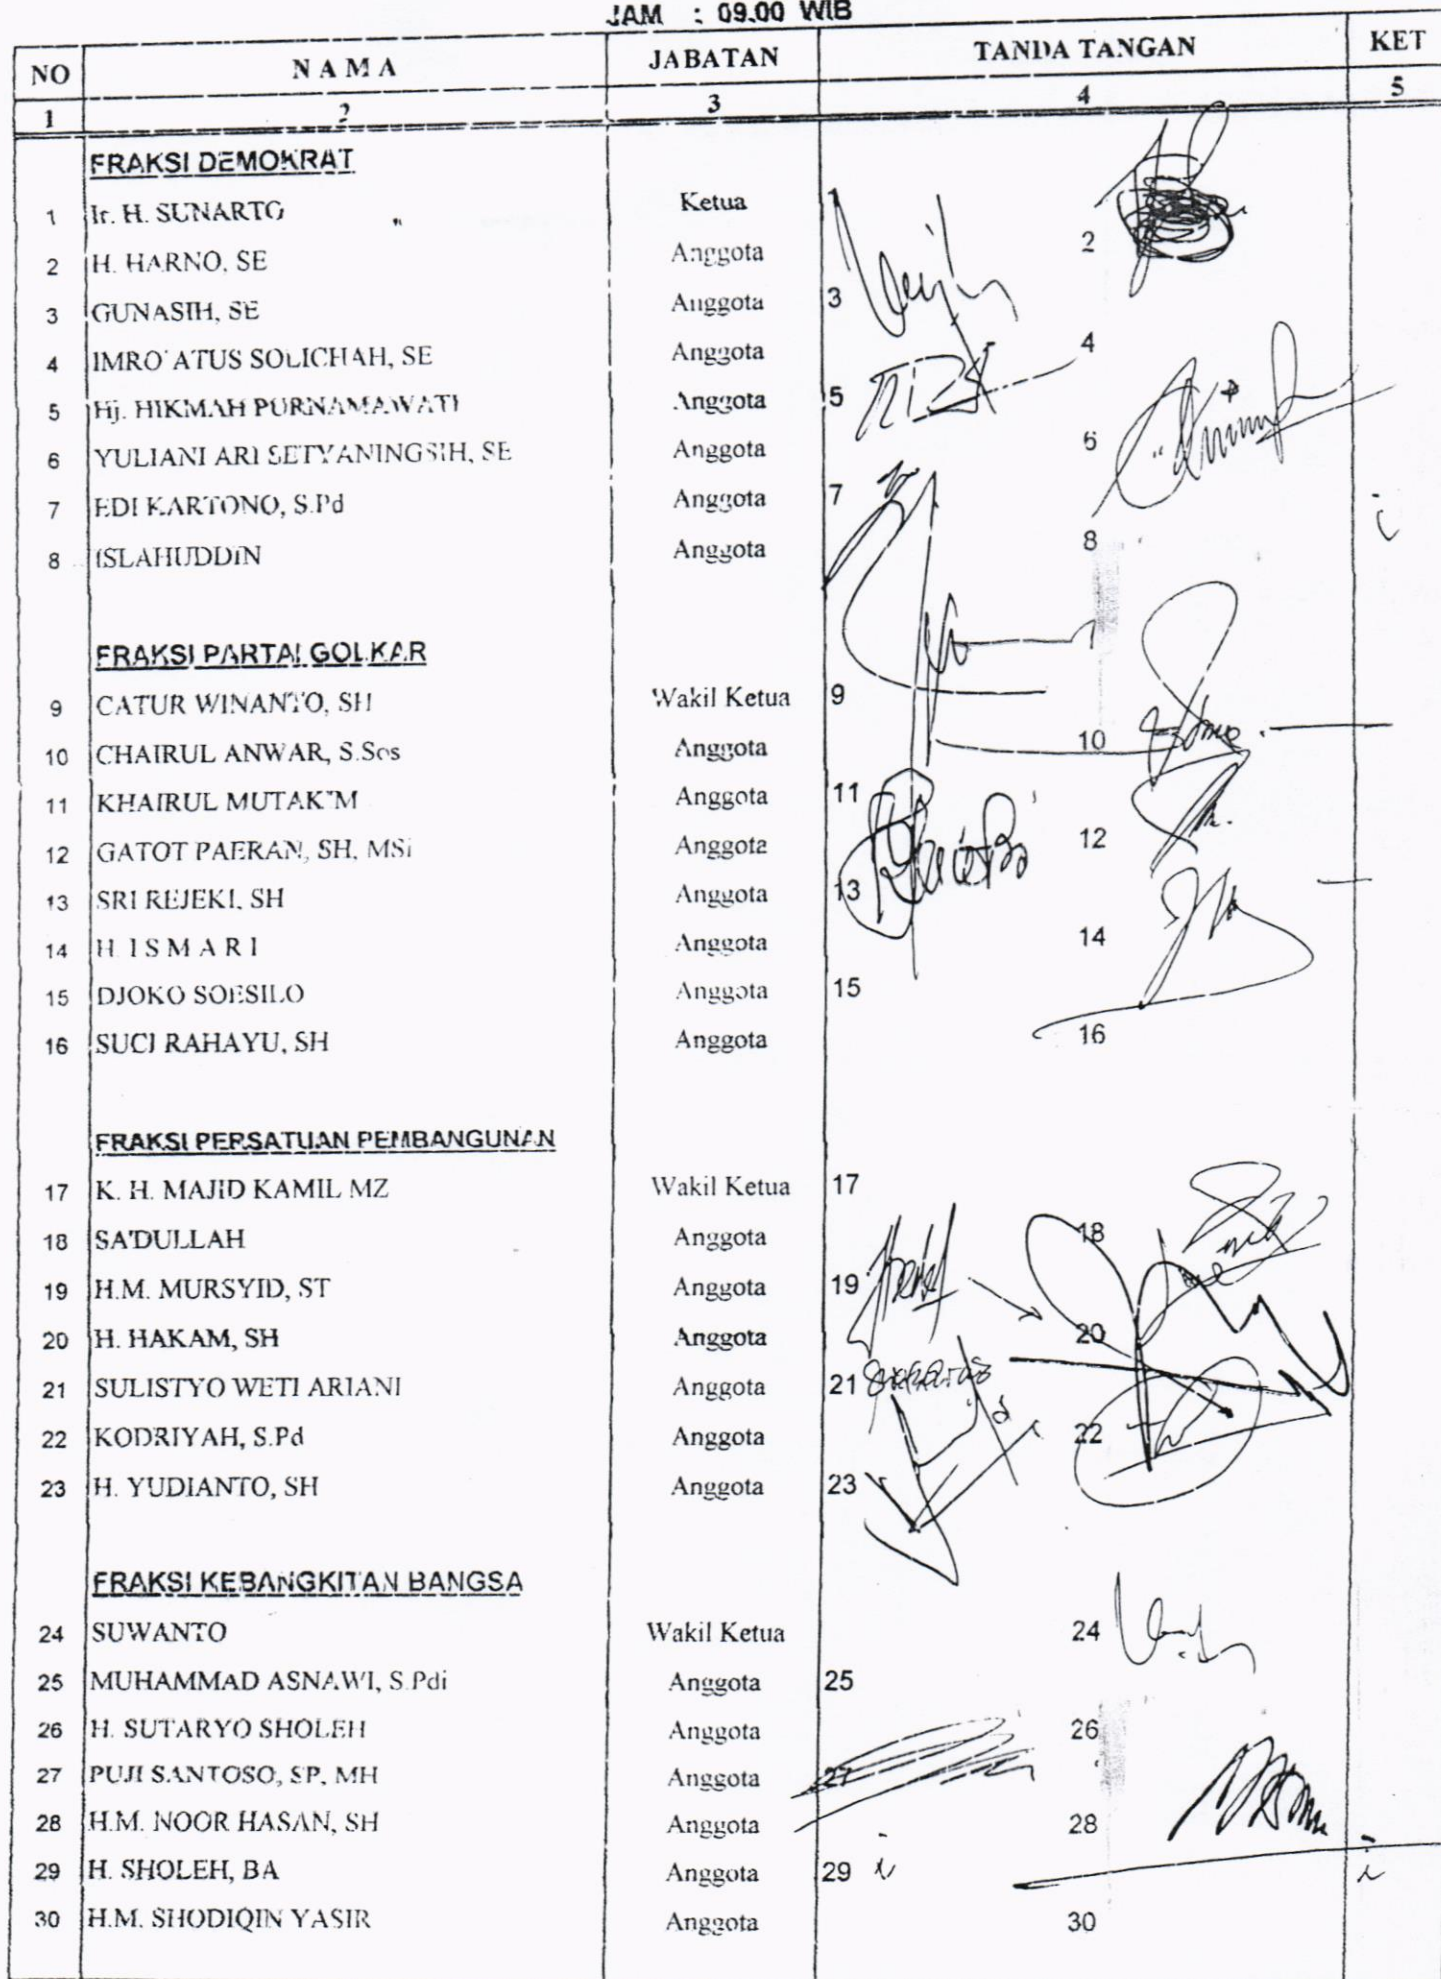 JAM : 09.00 WIB
NO NAMA JABATAN TANDA TANGAN KET
1 2 3 4 5
FRAKSI DEMOKRAT
1 Ir. H. SUNARTO Ketua 1
2 H. HARNO, SE Anggota 2
3 GUNASIH, SE Anggota 3
4 IMRO'ATUS SOLICHAH, SE Anggota 4
5 Hj. HIKMAH PURNAMAWATI Anggota 5
6 YULIANI ARI SETYANINGSIH, SE Anggota 6
7 EDI KARTONO, S.Pd Anggota 7
8 ISLAHUDDIN Anggota 8 i
FRAKSI PARTAI GOLKAR
9 CATUR WINANTO, SH Wakil Ketua 9
10 CHAIRUL ANWAR, S.Sos Anggota 10
11 KHAIRUL MUTAKIM Anggota 11
12 GATOT PAERAN, SH, MSi Anggota 12
13 SRI REJEKI, SH Anggota 13
14 H. ISMARI Anggota 14
15 DJOKO SOESILO Anggota 15
16 SUCI RAHAYU, SH Anggota 16
FRAKSI PERSATUAN PEMBANGUNAN
17 K. H. MAJID KAMIL MZ Wakil Ketua 17
18 SA'DULLAH Anggota 18
19 H.M. MURSYID, ST Anggota 19
20 H. HAKAM, SH Anggota 20
21 SULISTYO WETI ARIANI Anggota 21
22 KODRIYAH, S.Pd Anggota 22
23 H. YUDIANTO, SH Anggota 23
FRAKSI KEBANGKITAN BANGSA
24 SUWANTO Wakil Ketua 24
25 MUHAMMAD ASNAWI, S.Pdi Anggota 25
26 H. SUTARYO SHOLEH Anggota 26
27 PUJI SANTOSO, SP, MH Anggota 27
28 H.M. NOOR HASAN, SH Anggota 28
29 H. SHOLEH, BA Anggota 29 i i
30 H.M. SHODIQIN YASIR Anggota 30